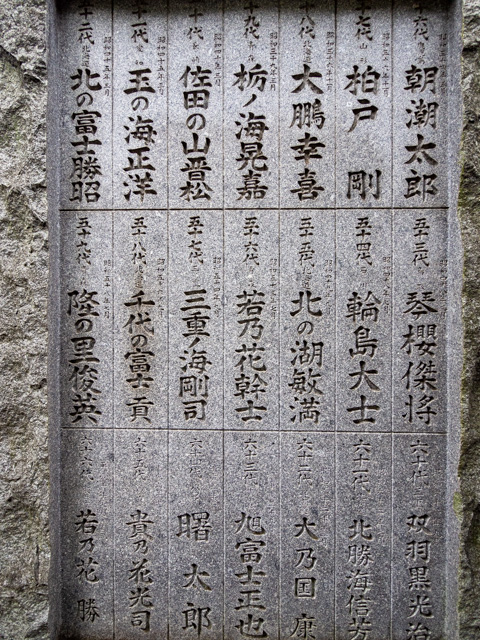 十六代
朝潮太郎
十七代
柏戸 剛
十八代
大鵬幸喜
十九代
栃ノ海晃嘉
十代
佐田の山晋松
十一代
玉の海正洋
十二代
北の富士勝昭
五十三代
琴櫻傑将
五十四代
輪島大士
五十五代
北の湖敏満
五十六代
若乃花幹士
五十七代
三重ノ海剛司
五十八代
千代の富士 貢
五十九代
隆の里俊英
六十代
双羽黒光治
六十一代
北勝海信芳
六十二代
大乃国 康
六十三代
旭富士正也
六十四代
曙 太郎
六十五代
貴乃花光司
六十六代
若乃花 勝